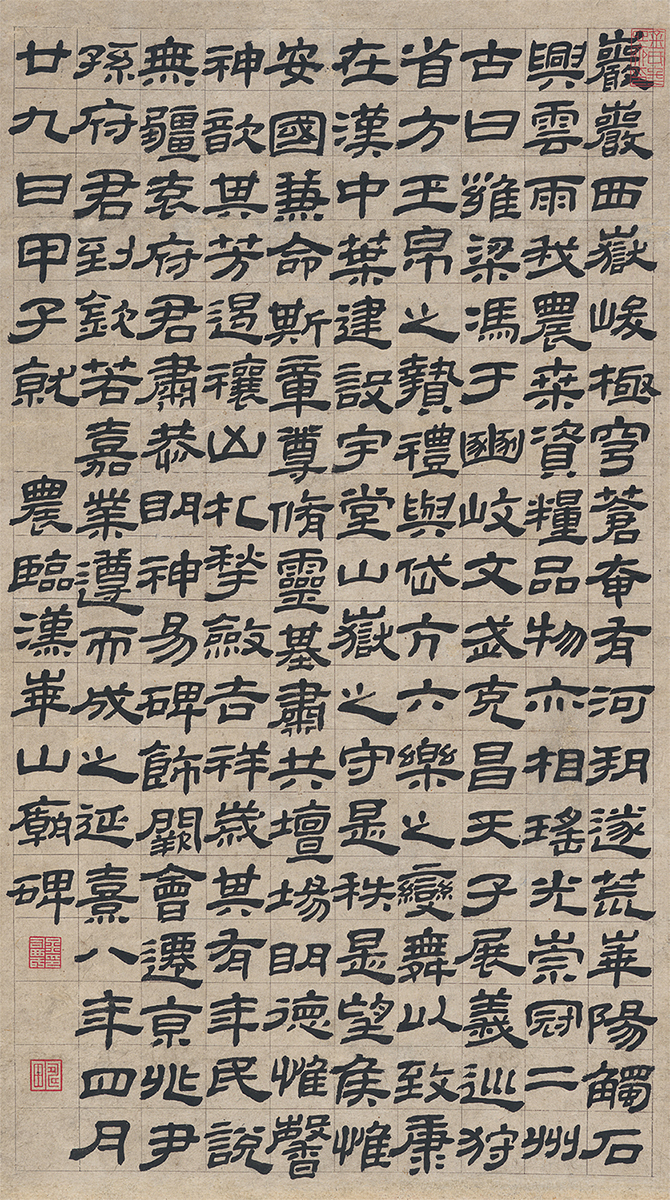 巖巖西嶽峻極穹蒼奄有河朔遂荒華陽觸石
興雲雨我農桑資糧品物亦相瑤光崇冠二州
古曰雍梁馮于豳岐文武克昌天子展義巡狩
省方玉帛之贄禮與岱亢六樂之變舞以致康
在漢中葉建設宇堂山嶽之守是秩是望侯惟
安國兼命斯章尊脩靈基肅共壇場明德惟馨
神歆其芳遏禳凶札揫斂吉祥歲其有年民說
無疆袁府君肅恭明神易碑飾闕會遷京兆尹
孫府君到欽若嘉業遵而成之延熹八年四月
廿九日甲子就 農臨漢華山廟碑